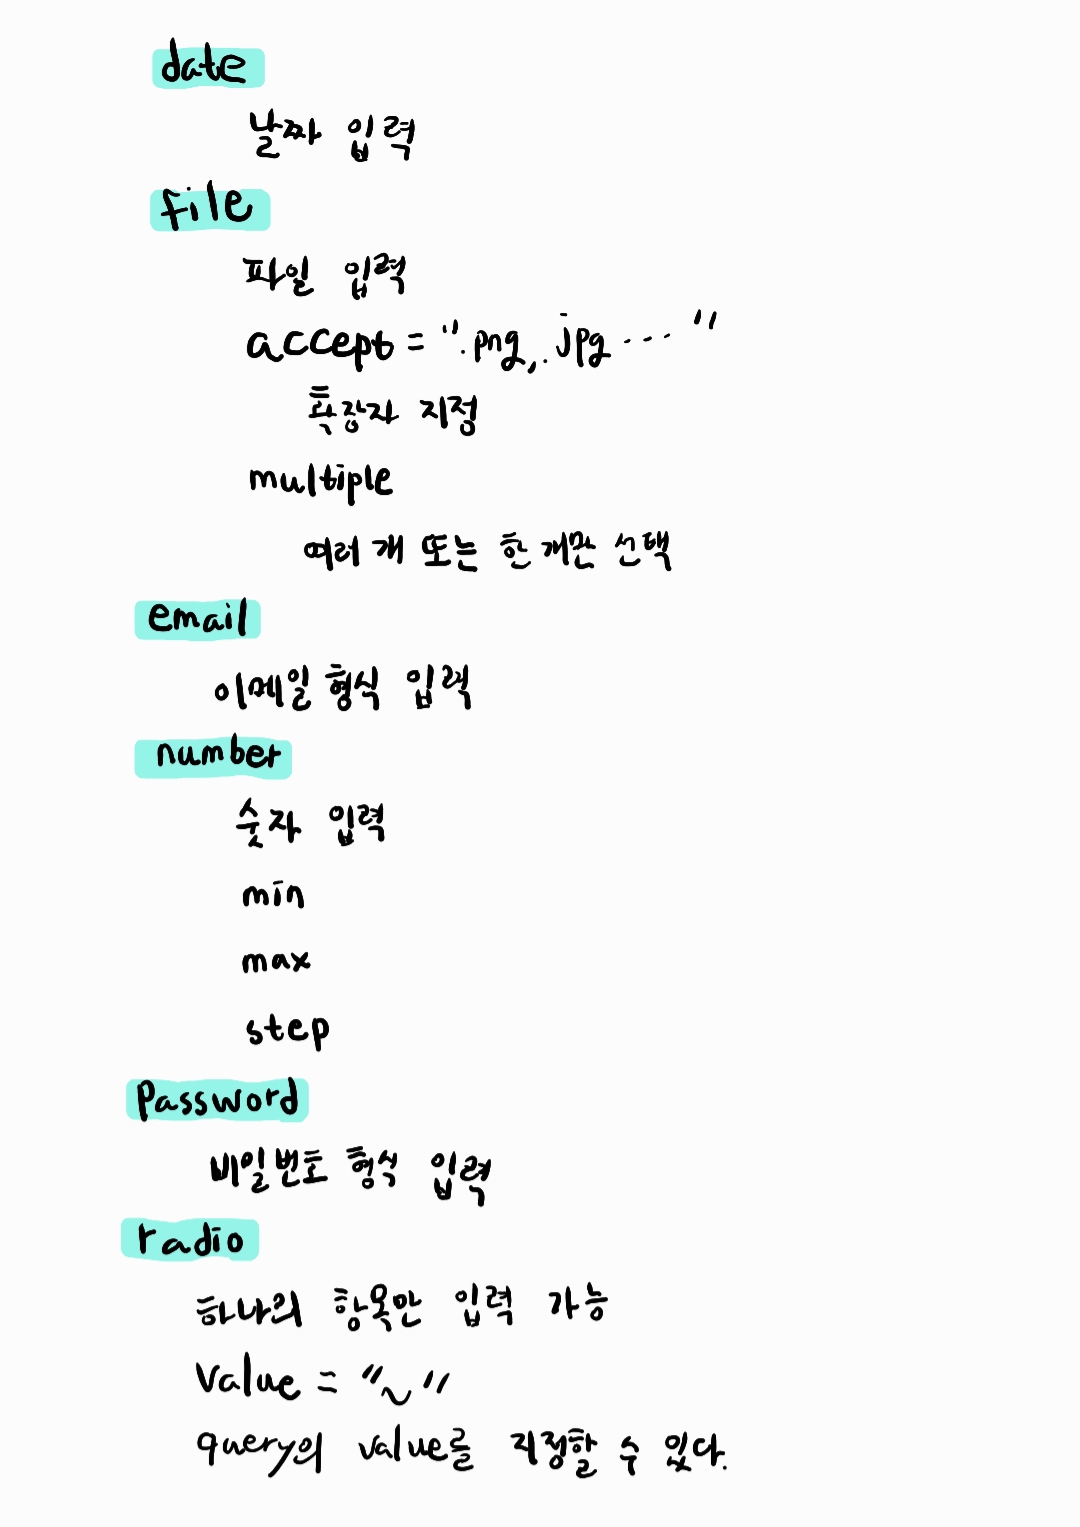 date
날짜 입력
file
파일 입력
accept = ".png, .jpg ... "
확장자 지정
multiple
여러 개 또는 한 개만 선택
email
이메일 형식 입력
number
숫자 입력
min
max
step
Password
비밀번호 형식 입력
radio
하나의 항목만 입력 가능
Value = "~"
query의 value를 지정할 수 있다.